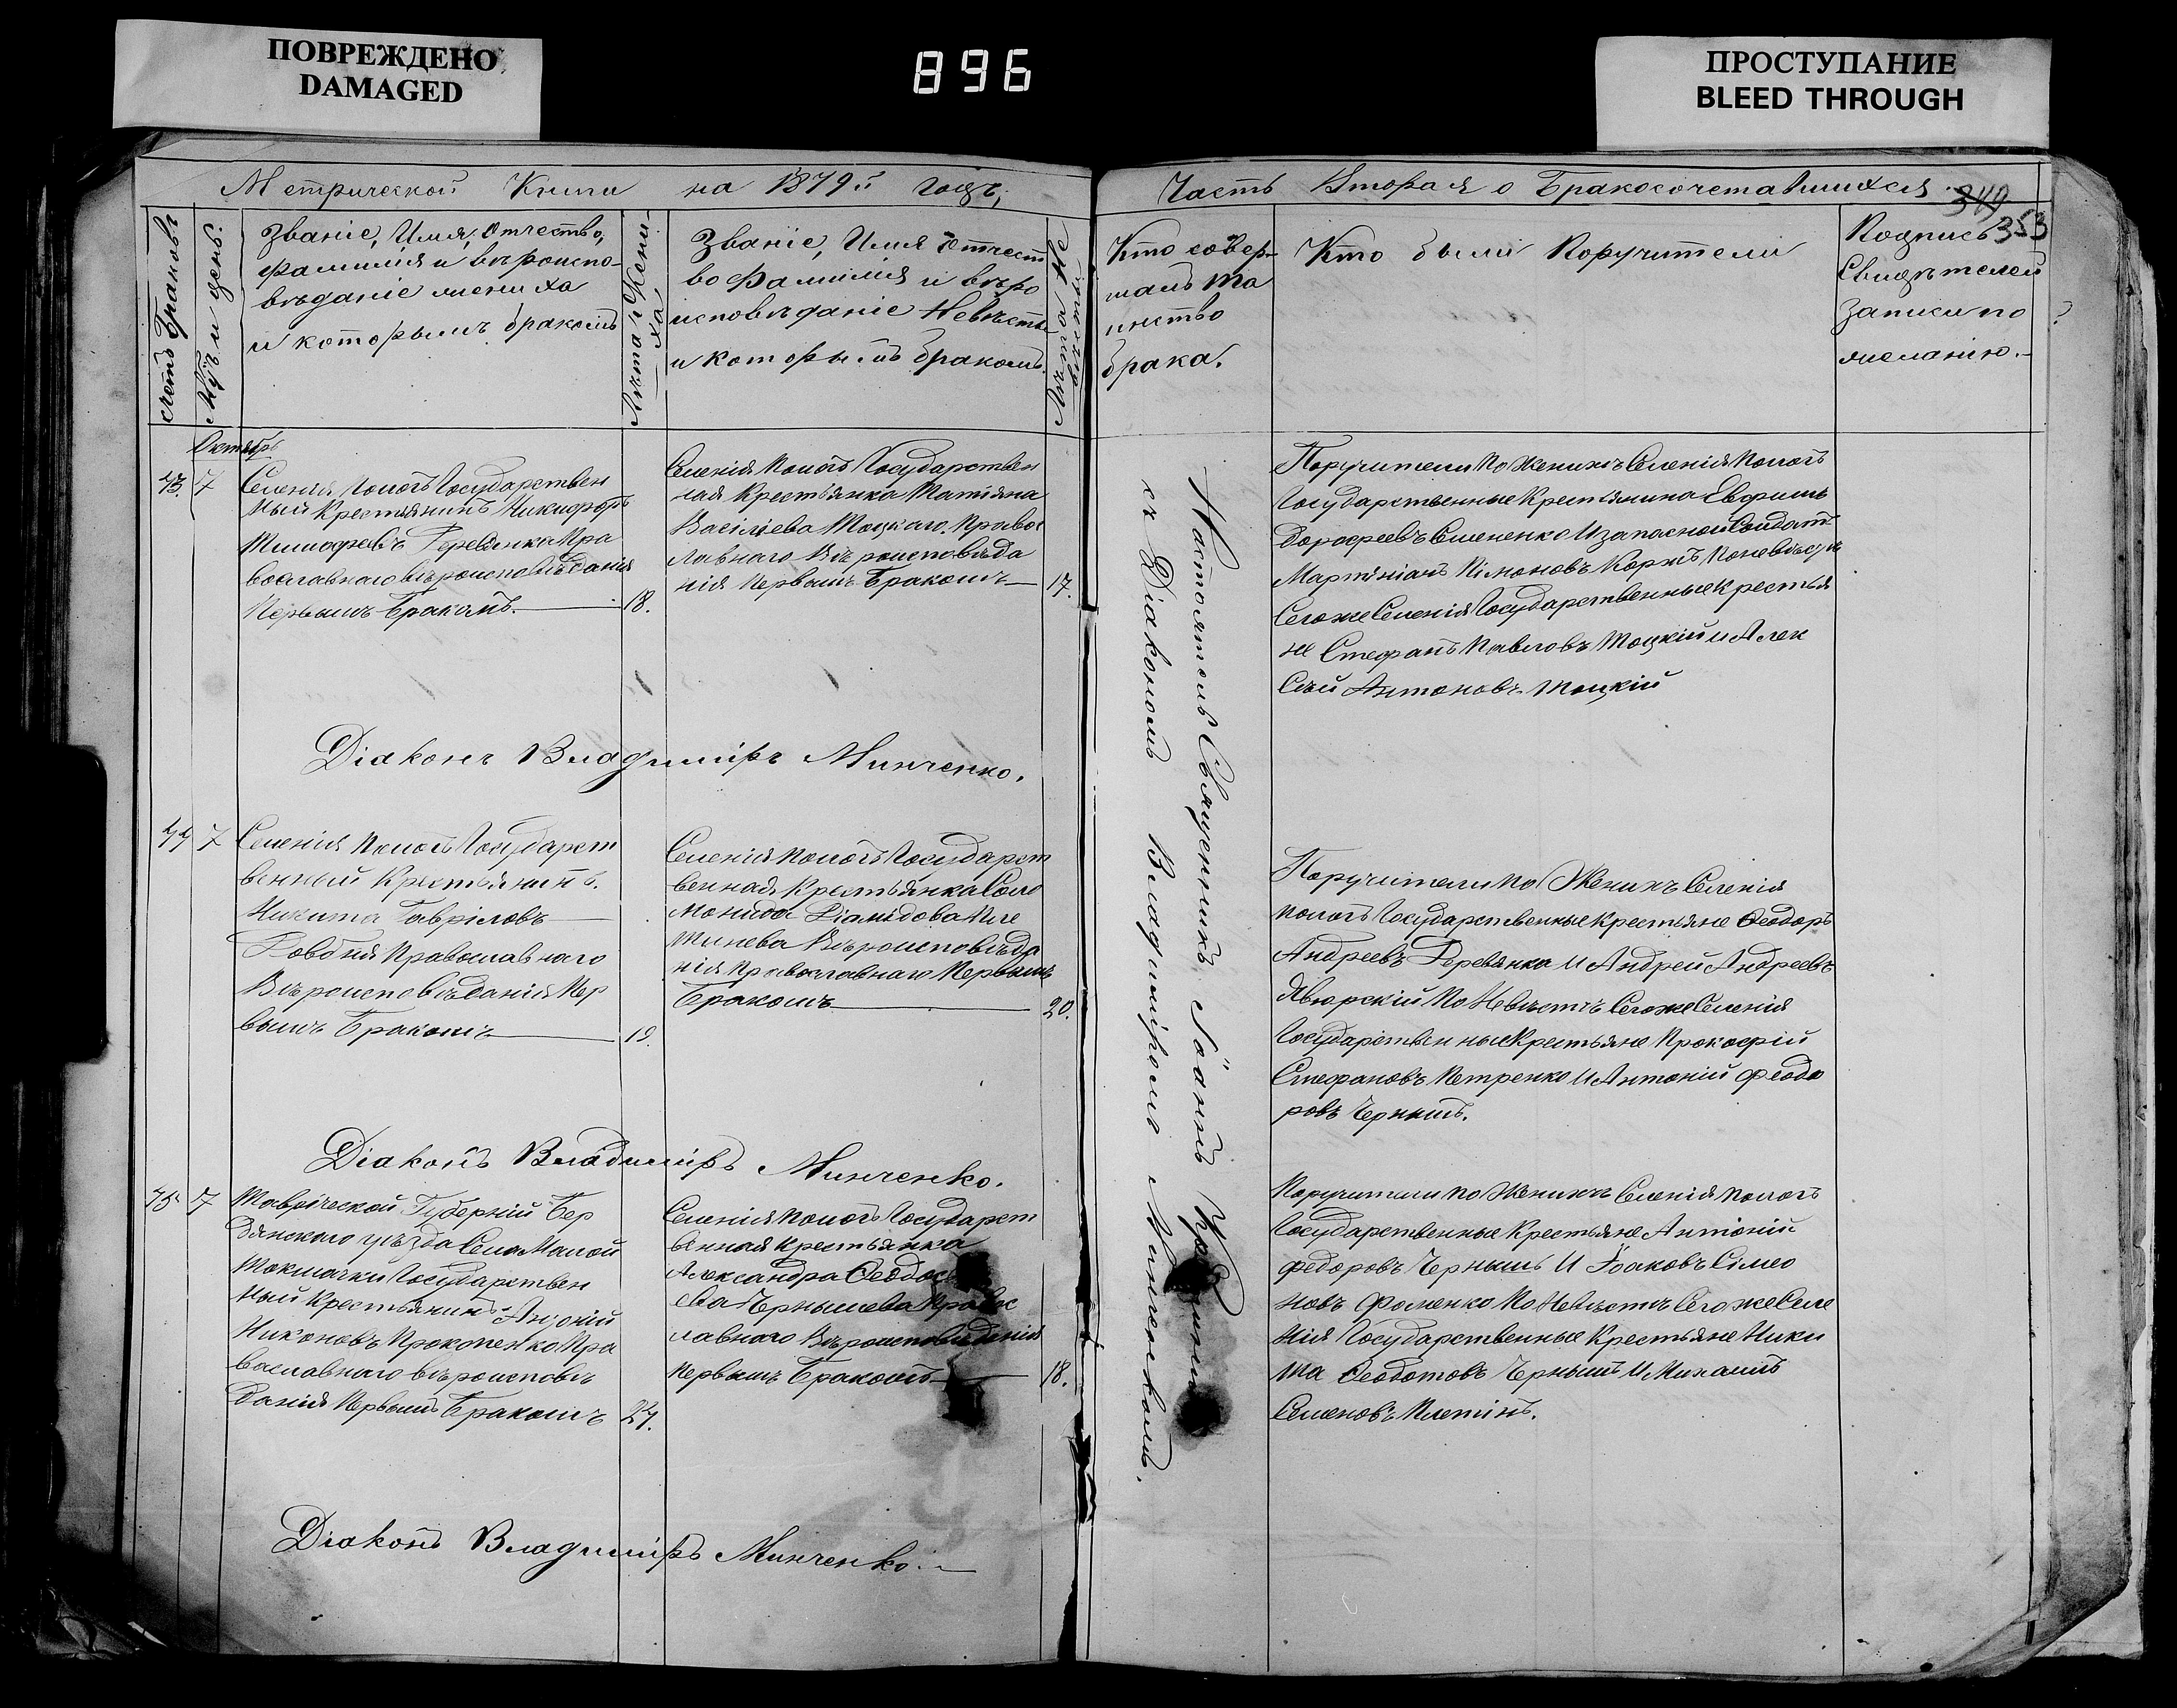 ПОВРЕЖДЕНО
DAMAGED
896
ПРОСТУПАНИЕ
BLEED THROUGH
Метрической Книги на 1879й годъ,
Часть Вторая о Бракосочетавшихся
349
353
счетъ Браковъ
Мцъ и день.
Званіе, Имя, Отчество,
фамилія и вѣроиспо-
вѣданіе жениха
и которымъ бракомъ
Лѣта Жени-
ха
Званіе, Имя Отчест
во Фамилія и вѣро
исповѣданіе Невѣсты
и которымъ бракомъ.
Лѣта Не
вѣсты
Кто совер-
шалъ та
инство
брака.
Кто были Поручители
Подпись
Свидѣтелей
Записи по
желанію.
Октябрь
73. 7
Селенія Пологъ Государствен
ный Крестьянинъ Никифоръ
Тимофеевъ Деревянка Пра
вославнаго вѣроисповѣданія
Первымъ Бракомъ. 18.
Селенія Пологъ Государствен
ная Крестьянка Татіяна
Васіліева Тоцкаго Правос
лавнаго Вѣроисповѣда
нія Первымъ Бракомъ 17.
Поручители по Женихѣ Селенія Пологъ
Государственные Крестьянина Евфимъ
Дорофеевъ Семененко И запасной Солдатъ
Мартініанъ Пімоновъ Коржъ, По невѣстѣ
Сегоже Селенія Государственные крестья
не Стефанъ Павловъ Тоцкій и Алек
сѣй Антоновъ Тоцкій
Діаконъ Владиміръ Минченко.
74 7
Селенія Пологъ Государст
венный Крестьянинъ.
Никита Гавріловъ
Ровбня Православнаго
Вѣроисповѣданія Пер
вымъ Бракомъ 19.
Селенія Пологъ Государст
венная Крестьянка Соло
монида Діамідова Пле
тинева Вѣроисповѣда
нія Православнаго Первымъ
Бракомъ 20.
Поручители по Женихѣ Селенія
Пологъ Государственные Крестьяне Ѳеодоръ
Андреевъ Деревянка И Андрей Андреевъ
Яворскій По Невѣстѣ Сегоже Селенія
Государственные Крестьяне Прокофій
Стефановъ Петренко И Антоній Феодо
ровъ Чернышъ.
Діаконъ Владиміръ Минченко.
75 7
Таврической Губерній Бер
дянскаго уѣзда Села Малой
Токмачки Государствен
ный Крестьянинъ Антоній
Никоновъ Прокопенко Пра
вославнаго вѣроисповѣ
данія Первымъ Бракомъ 24.
Селенія Пологъ Государст
венная Крестьянка
Александра
ева Чернышева Правос
лавнаго Вѣроисповѣданія
Первымъ Бракомъ 18.
Поручители по Женихѣ Селенія Пологъ
Государственные Крестьяне Антоній
Федоровъ Чернышъ И Іоаковъ Сімео
новъ Фоменко По Невѣстѣ Сегоже Селе
нія Государственные Крестьяне Ники
та Ѳеодотовъ Чернышъ И Михаилъ
Семеновъ Плетінь.
Діаконъ Владиміръ Минченко.
Настоятель Священникъ Іоаннъ
съ Діакономъ Владиміромъ Минченкомъ.